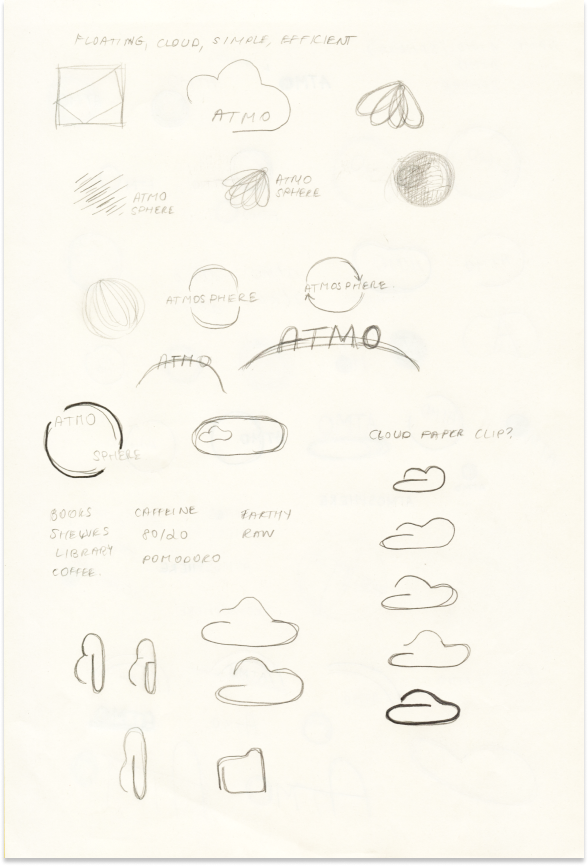 FLOATING, CLOUD, SIMPLE, EFFICIENT
ATMO
ATMO
SPHERE
ATMO
SPHERE
ATMOSPHERE
ATMOSPHERE.
ATMO
ATMO
ATMO
SPHERE
CLOUD PAPER CLIP?
BOOKS
SHELVES
LIBRARY
COFFEE.
CAFFEINE
80/20
POMODORO
EARTHY
RAW